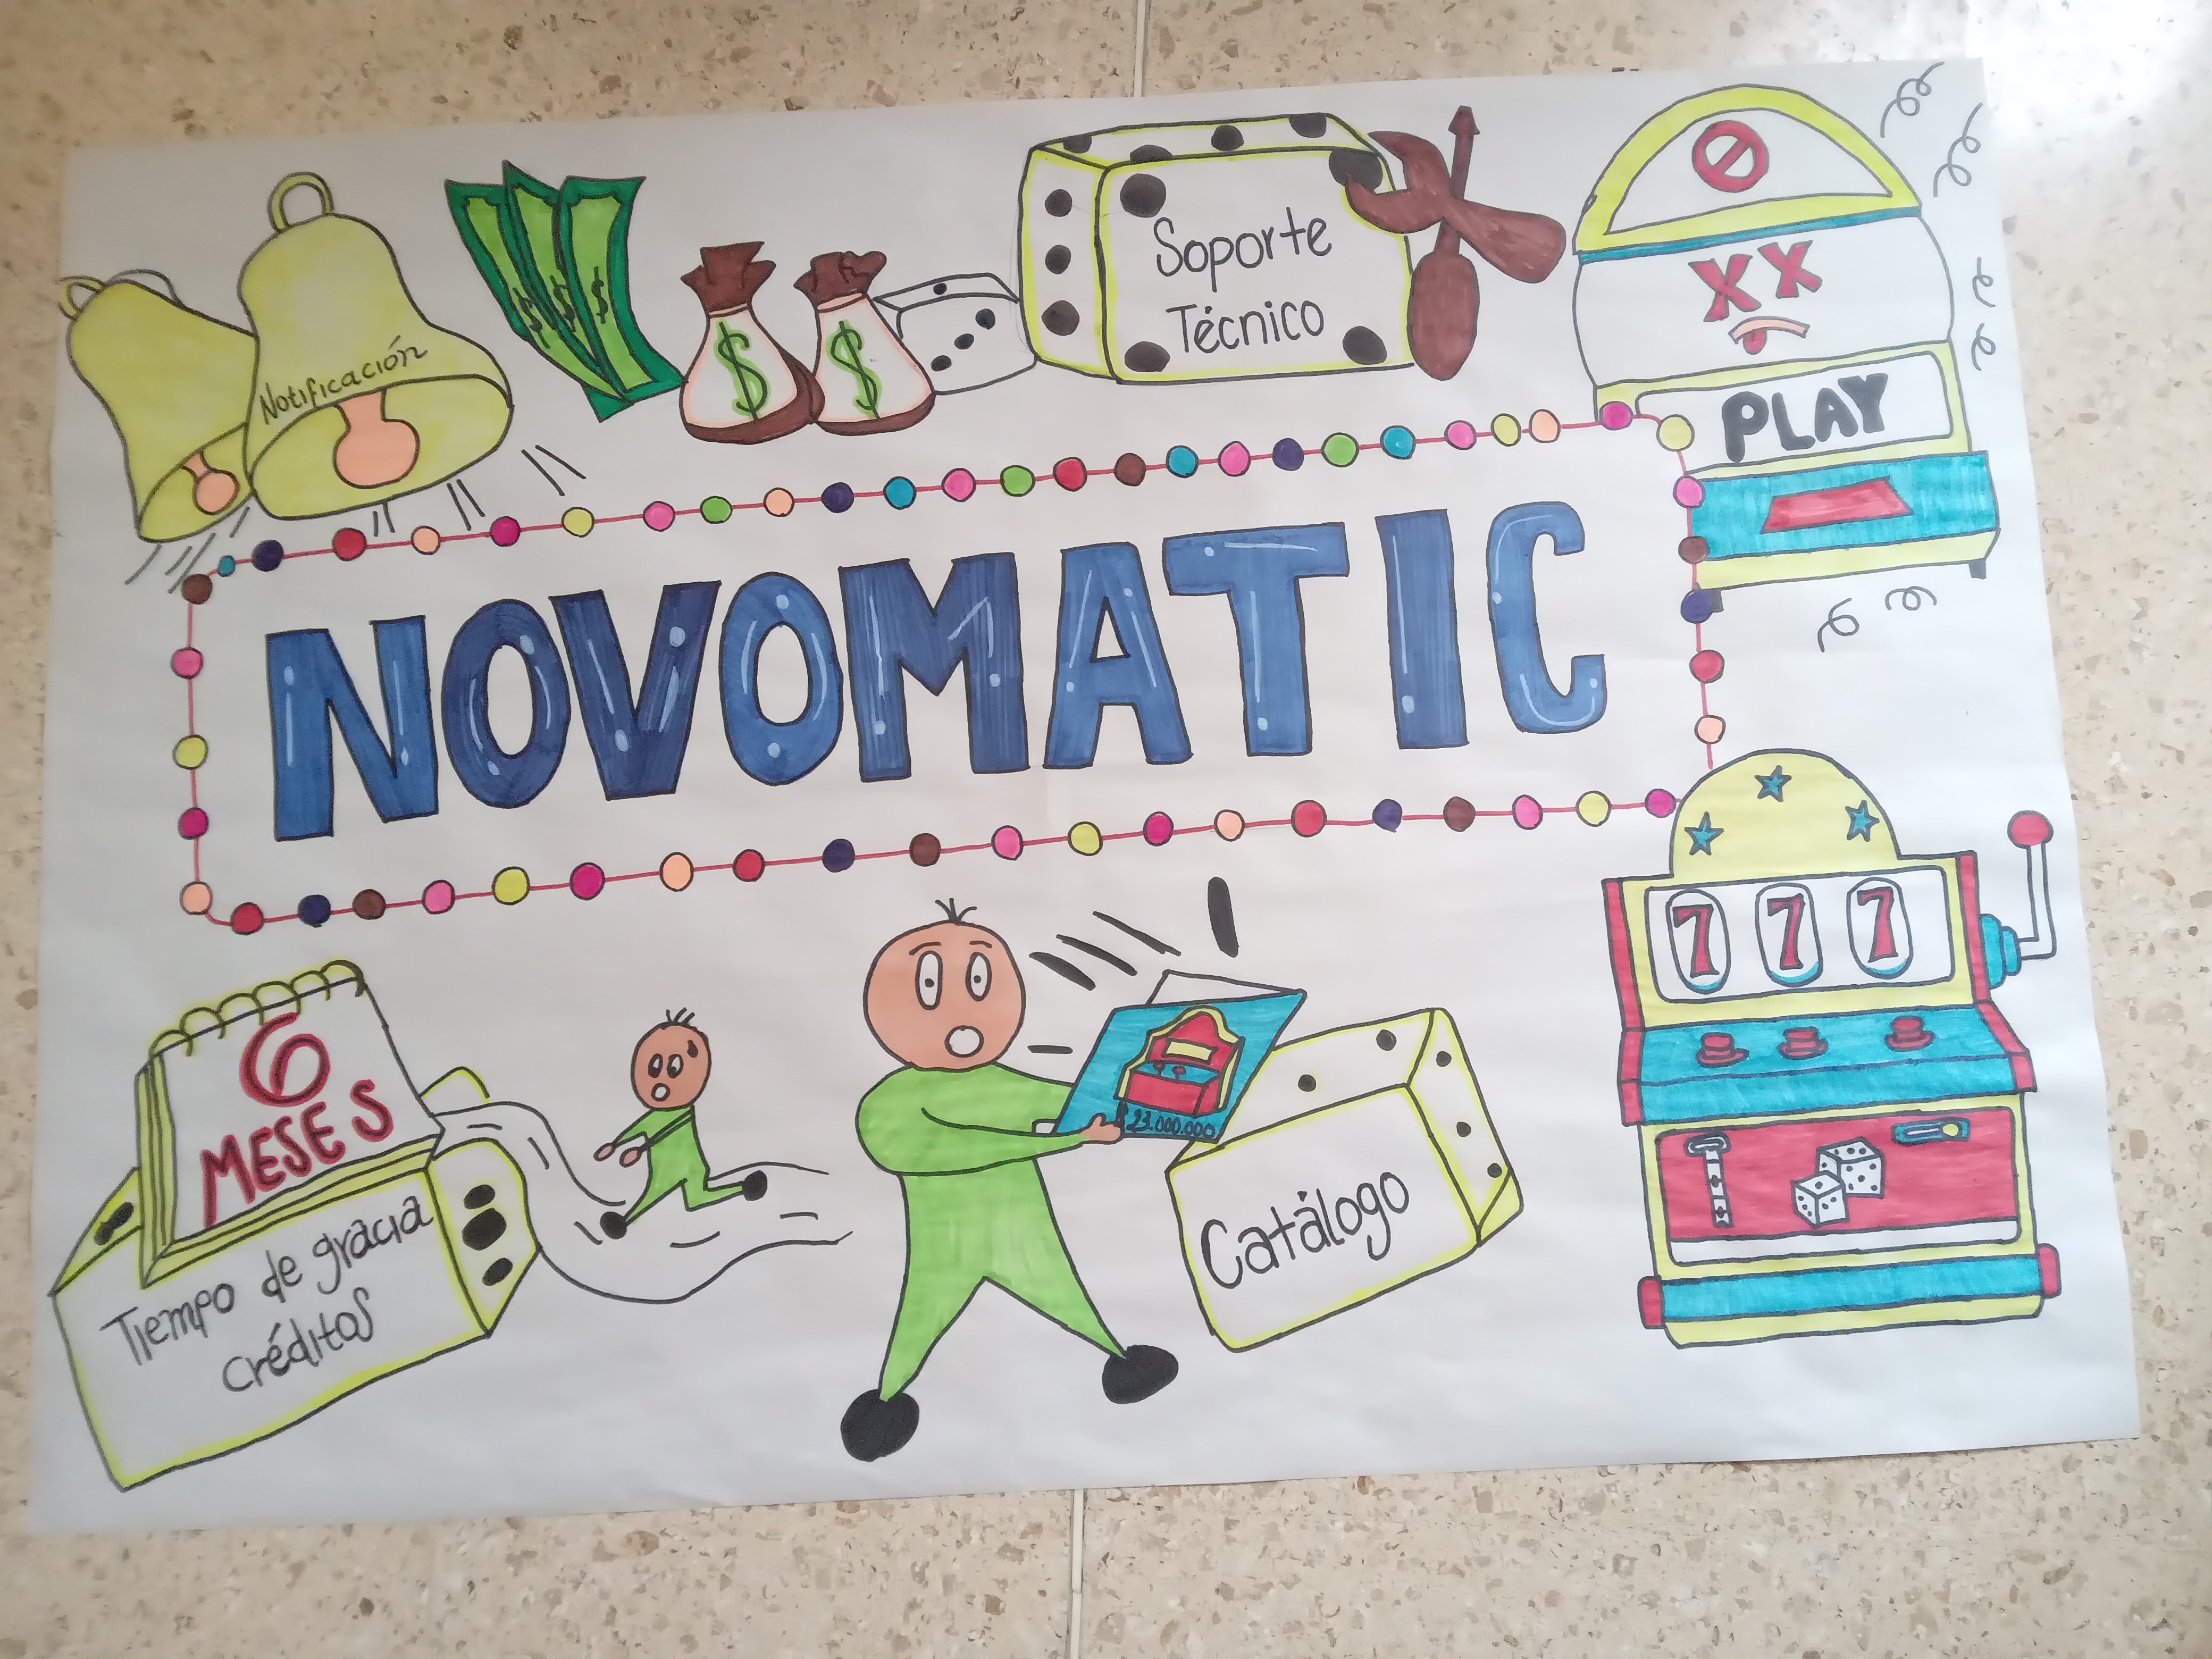 Notificación
$ $ $
$ $
Soporte
Técnico
XX
PLAY
NOVOMATIC
7 7 7
6
MESES
Tiempo de gracia
créditos
$23.000.000
Catálogo